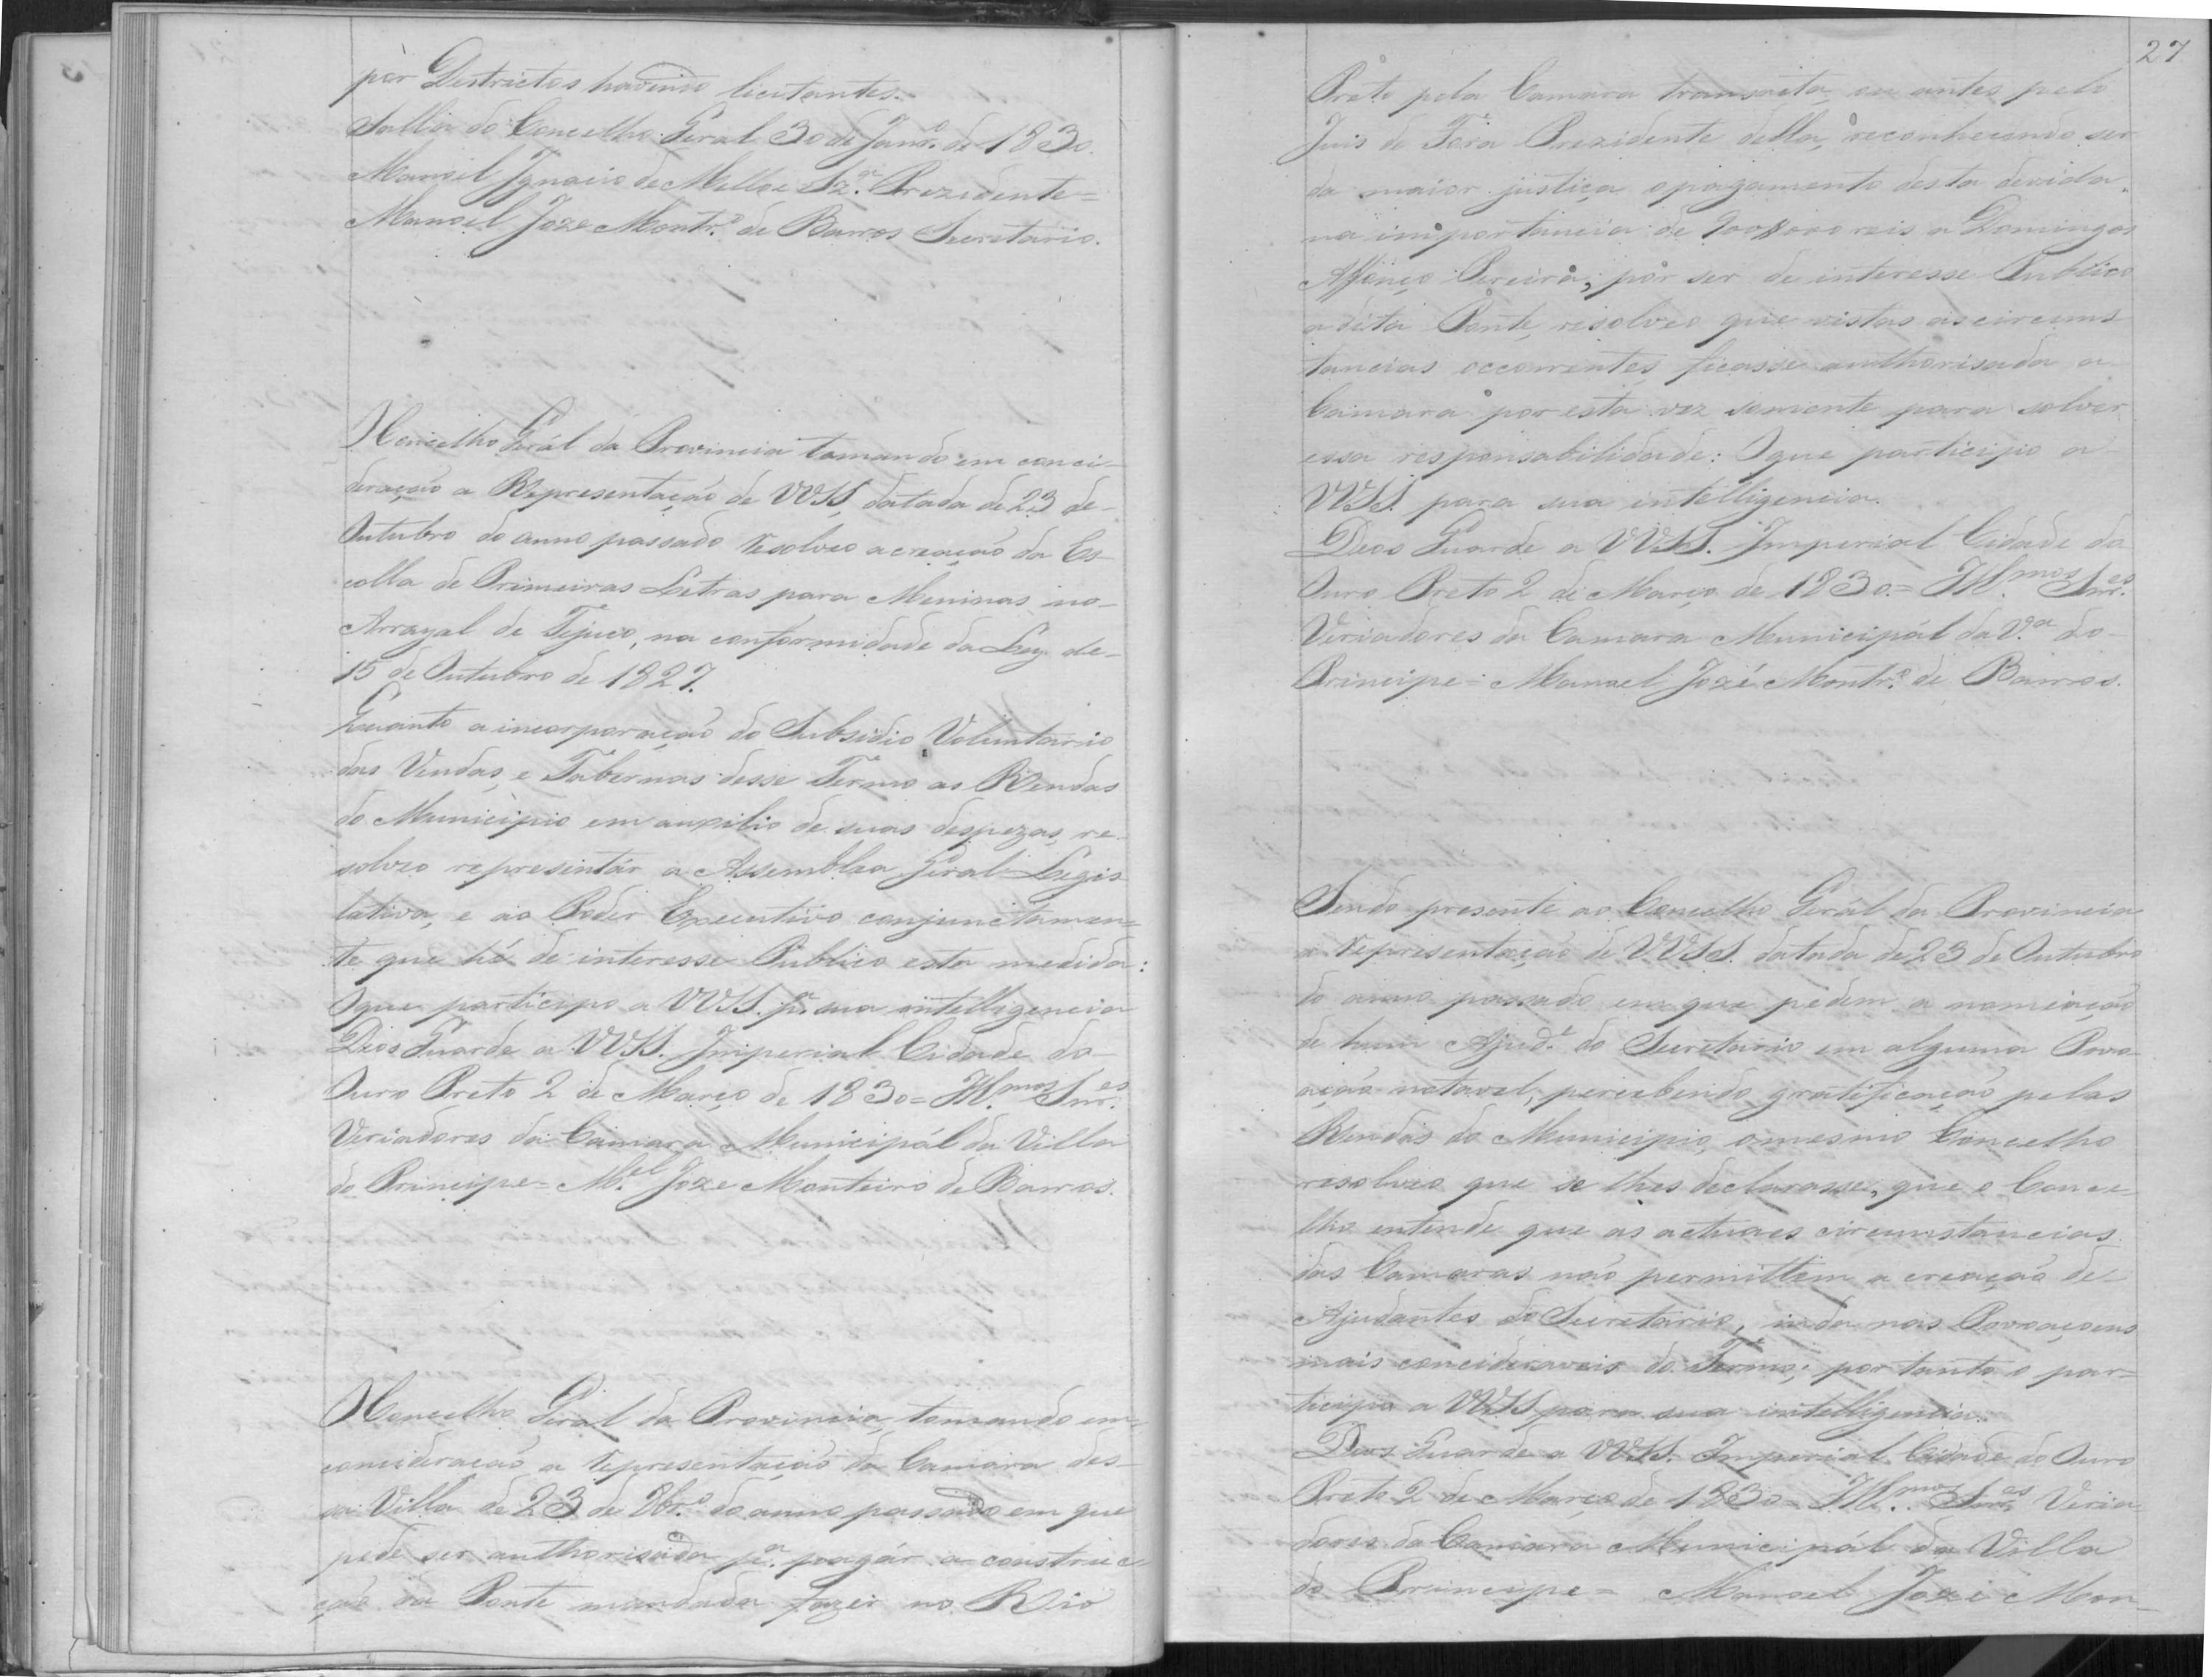 por Destrictos havendo licitantes.
Salla do Concelho Geral 30 de Janr.º de 1830.
Manoel Ignacio de Mello e Sz.ª Prezidente =
Manoel Joze Montr.º de Barros Secretario.
O Concelho Gerál da Provincia tomando em conci-
deração a Representação de VVSS, datada de 23 de-
Outubro do anno passado resolveo a creação da Es-
colla de Primeiras Letras para Meninas no-
Arrayal de Tejuco, na conformidade da Ley de-
15 de Outubro de 1827.
Quanto a incorporação do Subsidio Voluntario
das Vendas, e Tabernas desse Termo as Rendas
do Municipio em auxilio de suas despezas, re-
solveo representár a Assemblea Geral Legis
lativa, e ao Poder Executivo conjunctamen=
te que hé de interesse Publico esta medida:
O que participo a VVSS. p.ª sua intelligencia
Deos Guarde a VVSS. Imperial Cidade do-
Ouro Preto 2 de Março de 1830 = Ill.mos Snr.es
Veriadores da Camara Municipál da Villa
do Principe = M.el Joze Monteiro de Barros.
O Concelho Geral da Provincia, tomando em=
concideração a representação da Camara des-
sa Villa de 23 de 8br.º do anno passado em que
pede ser authorisada p.ª pagár a construc
ção da Ponte mandada fazer no Rio
27
Preto pela Camara transacta, ou antes pelo
Juis de Fóra Prezidente della, reconhecendo ser
da maior justiça o pagamento desta devida,
na importancia de 900$000 reis a Domingos
Affonço Pereira, por ser de interesse Publico
a dita Ponte, resolveo que vistas as circums
tancias occorrentes ficasse authorisada a
Camara por esta vez somente para solver
essa responsabilidade: O que participo a
VVSS. para sua intelligencia.
Deos Guarde a VVSS. Imperial Cidade do
Ouro Preto 2 de Março de 1830. = Ill.mos Snr.es
Veriadores da Camara Municipál da V.ª do-
Principe = Manoel Jozé Montr.º de Barros.
Sendo presente ao Concelho Gerál da Provincia
a representação de VVSS. datada de 23 de Outubro
do anno passado em que pedem a nomeação
de hum Ajud.e do Secretario em alguma Povo-
ação notavel, percebendo gratificação pelas
Rendas do Municipio, o mesmo Concelho
resolveo que se lhes declarasse, que o Conce-
lho entende que as actuaes circumstancias
das Camaras não permittem a creação de-
Ajudantes do Secretario, inda nas Povoaçoens
mais concideraveis do Termo; por tanto o par=
ticipo a VVSS para sua intelligencia.
Deos Guarde a VVSS. Imperial Cidade do Ouro
Preto 2 de Março de 1830 = Ill.mos Snr.es Veria
dores da Camara Municipál da Villa
do Principe = Manoel Joze Mon-